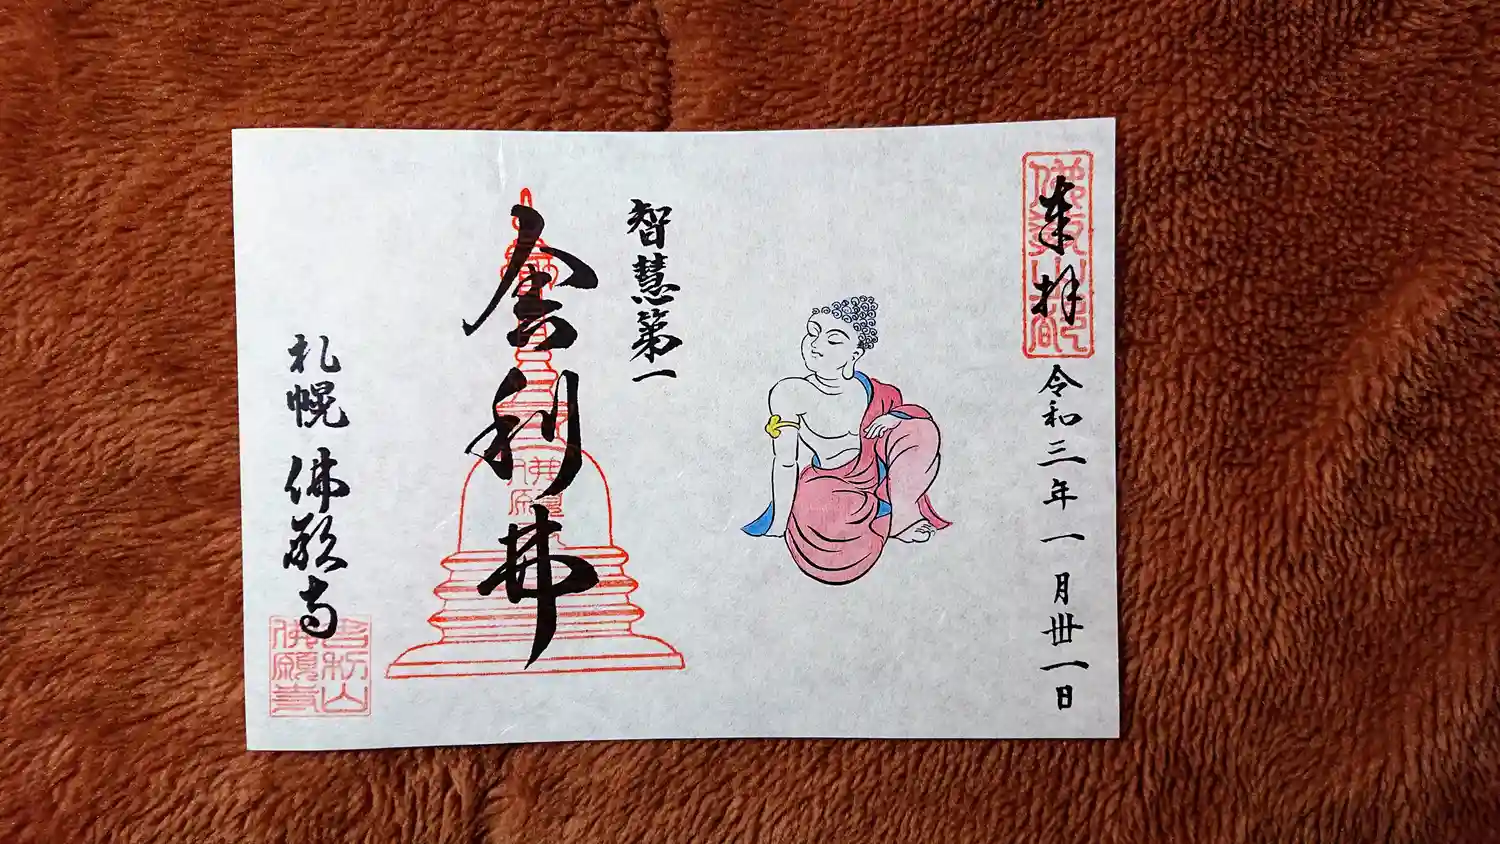 奉拝
令和三年一月卅一日
智慧第一
舎利弗
札幌 佛願寺
佛願寺